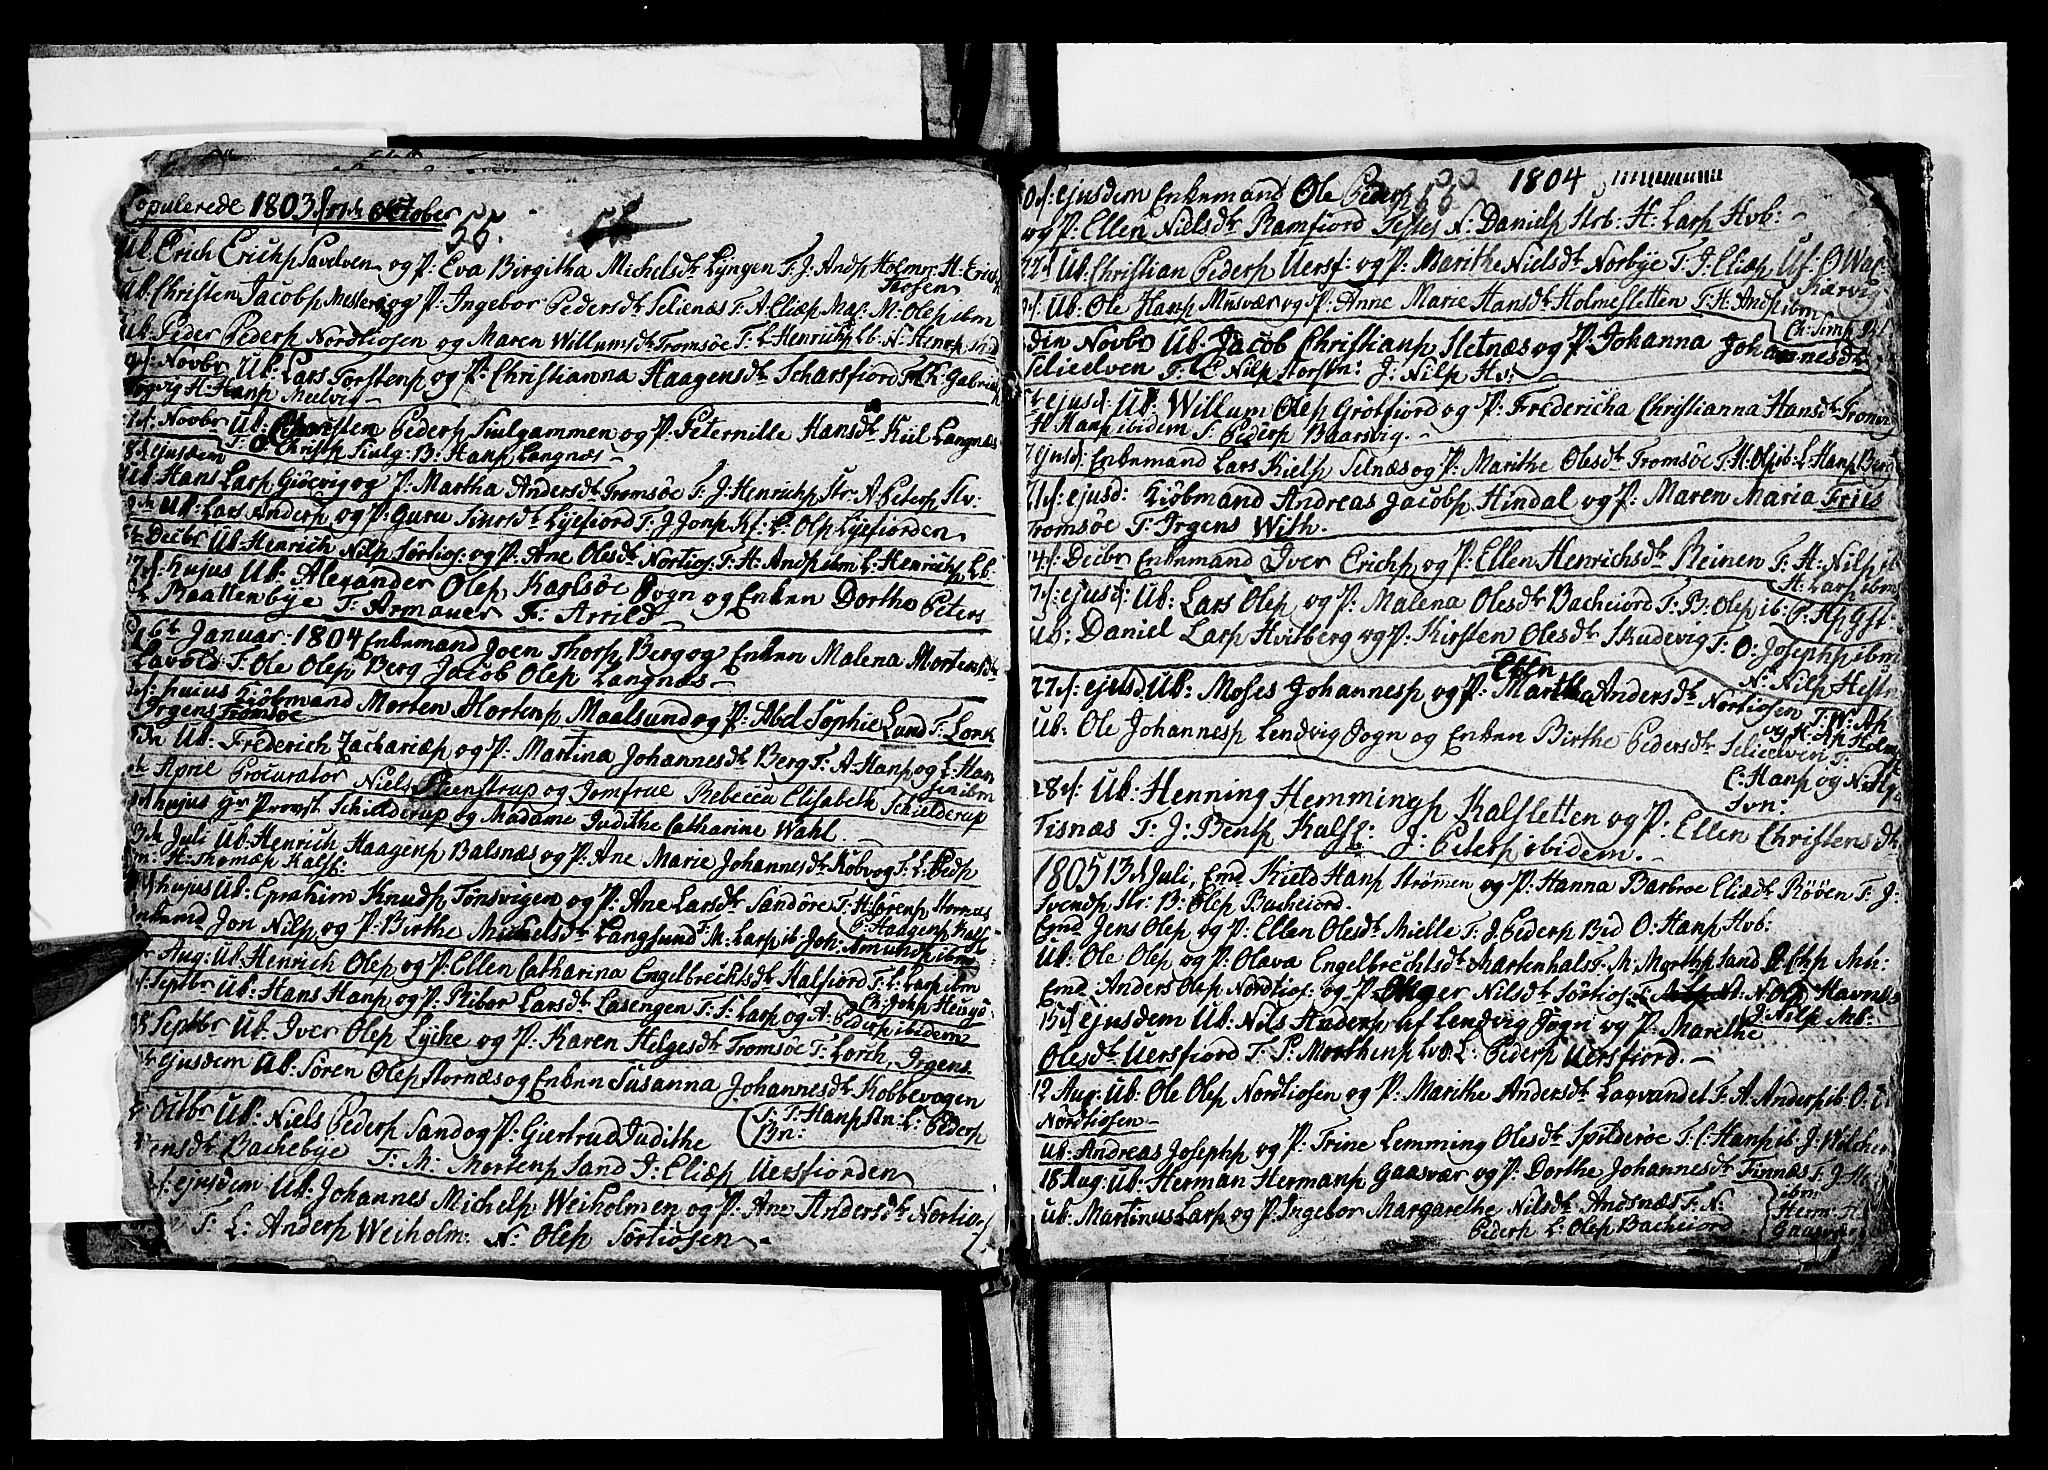 Copulerede 1803 October
55.
Ub: Erich Erichs Savelven og P: Eva Birgitha Michelsdr Lyngen T: J: Ands Holmn: H: Erichs
Taosen
Ub: Christen Jacobs og P: Ingebor Peders dr Seljenæs T: A: Eliæs Mas: M: Oles ibm
Ub: Peder Peders Nordkiosen og Maren Willumsdr Tromsøe T: L: Henrichs Lb: N: Henrs
Novbr Ub: Lars Torstens og P: Christianna Haagensdr Scharsfiord T: K: Gabriels
Vogvig H: Hans Meelvig
Novbr Ub: Peders Siulgammen og P: Peternille Hansdr Kiil Langnæs
T: O: Christs Siulg: B: Hans Langnæs
ejusdem
Ub: Hans Lars Giøevig og P: Martha Andersdr Tromsøe T: J: Henrichs Str: A: Peters Slv:
Ub: Lars Anders og P: Guru Siursdr Lyefiord T: J: Jons Kf: L: Ols Lyefiorden
Decbr Ub: Henrich Nils Sørkios: og P: Ane Olesdr Nortios: T: H: Ands ibm L: Henrichs Lb:
hujus Ub: Alexander Oles Karlsøe Sogn og Enken Dorthe Peters
Baattenbye T: Armauer Fr: Arild
16t Januar: 1804 Enkemand Joen Thors Berg og Enken Malena Mortensdr
Lavold T: Ole Oles Berg Jacob Oles Langnæs
hujus Kiøbmand Morten Mortens Maalsund og P: Abel Sophie Lund T: Lork
Irgens Tromsøe
Ub: Frederich Zachariæs og P: Martina Johannesdr Berg T: A: Hans og L: Han
sen ibm
April Procurator Niels Steenstrup og Jomfrue Rebecca Elisabeth Schielderup
hujus Hr Provst Schielderup og Madame Judithe Catharine Wahl.
Juli Ub: Henrich Haagens Balsnæs og P: Ane Marie Johannesdr Kobvog T: L: Peds
H: Thomæs Kalsl:
hujus Ub: Eprahim Knuds Tønsvigen og P: Ane Larsdr Sandøre T: H: Sørens Stornæs
P: Haagens Kalsl
Enkemd Jon Nils og P: Birthe Michelsdr Langsund T: M: Lars ib: Joh: Amunds ibm
Aug: Ub: Henrich Oles og P: Ellen Catharina Engelbrechtsdr Kalfiord T: L: Lars ibm
Septbr Ub: Hans Hans og P: Ribor Larsdr Lasengen T: S: Lars og A: Peders ibidem
Ch: Jons Heusyø:
Septbr Ub: Iver Oles Lyche og P: Karen Helgesdr Tromsøe T: Lorch, Irgens
ejusdem Ub: Søren Oles Stornæs og Enken Susanna Johannesdr Kobbevogen
T: Hans Stn: L: Peders
Bn:
Octbr Ub: Niels Peders Sand og P: Giertrud Judithe
Jensdr Bachebye T: M: Mortens Sand J: Eliæs Uersfiorden
ejusdem Ub: Johannes Michels Weiholmen og P: Ane Andersdr Nortios
T: L: Anders Weiholm: N: Oles Sørtiosen
1804
ejusdem Enkemand Ole Peders
og P: Ellen Nielsdr Ramfiord Testes N: Daniels Strb: H: Lars Hvb:
22 Ub: Christian Peders Uersf: og P: Marithe Nielsdr Norbye T: J: Eliæs Uf: O Wac
kiærvig
Ub: Ole Hans Musvær og P: Anne Marie Hansdr Holmesletten T: H: Ands ibm
Ch: Sims
din Novbr Ub: Jacob Christians Sletnæs og P: Johanna Johannesdr
Selieelven T: E Nils Storstn: J: Nils Hv:
ejusd: Ub: Willum Oles Grøtfiord og P: Fredericha Christianna Hansdr Tromvig
H: Hans ibidem S: Peders Baarsvig.
ejusd: Enkemand Lars Kiels Selnæs og P: Marithe Olesdr Tromsøe T: H: Ols ib: L: Hans Berg
21 ejusd: Kiøbmand Andreas Jacobs Hindal og P: Maren Maria Friis
Tromsøe T: Irgens With.
Decbr Enkemand Iver Erichs og P: Ellen Henrichsdr Reinen T: H: Nils
H: Lars ibm
ejusd: Ub: Lars Oles og P: Malena Olesdr Bacheiord T: B: Oles ib: P: Hs Gfl:
Ub: Daniel Lars Hvitberg og P: Kirsten Olesdr Skudevig T: O: Josephs ibm
N: Nils Hestn
27 ejusd Ub: Moses Johannes og P: Ellen Andersdr Nortiosen T: W: As
og H: As Holm
Ub: Ole Johannes Lendvig Sogn og Enken Birthe Pedersdr Selieelven T:
C: Hans og Nils
Svn:
28 Ub: Henning Hemmings Kalsletten og P: Ellen Christensdr
Tisnæs T: J: Bents Kalsl: J: Peters ibidem.
1805 13d Juli, Emd Kield Hans Strømmen og P: Hanna Barbroe Eliædr Røøen T: J:
Svends Str: B: Oles Bacheiord.
Emd Jens Oles og P: Ellen Olesdr Mielle T: J: Peders Bid O: Hans Hvb:
Ub: Ole Oles og P: Olava Engelbrechtsdr Martenhals T: M: Morths Sand
Emd Anders Oles Nordkios: og P: Inger Nilsdr Sørtios: T: N: Oles Havnæs
J: Nils Mb:
15d ejusdem Ub: Nils Anders af Lendvig Sogn og P: Marethe
Olesdr Uersfiord T: P: Morthens L: Peders Uersfiord.
12 Aug: Ub: Ole Oles Nordtiosen og P: Marithe Andersdr Lagvandet T: A: Anders ib: O:
Nordtiosen
Ub: Andreas Josephs og P: Trine Lemming Olesdr Spilderøe T: C: Hans ib: J: Wilcher
18 Aug: Ub: Herman Hermans Gaasvær og P: Dorthe Johannesdr Finnæs T: J: H
ibm
Herm: H
Gaasvær
Ub: Martinus Lars og P: Ingebor Margarethe Nilsdr Andsnæs T: N:
Peders L: Oles Bacheiord